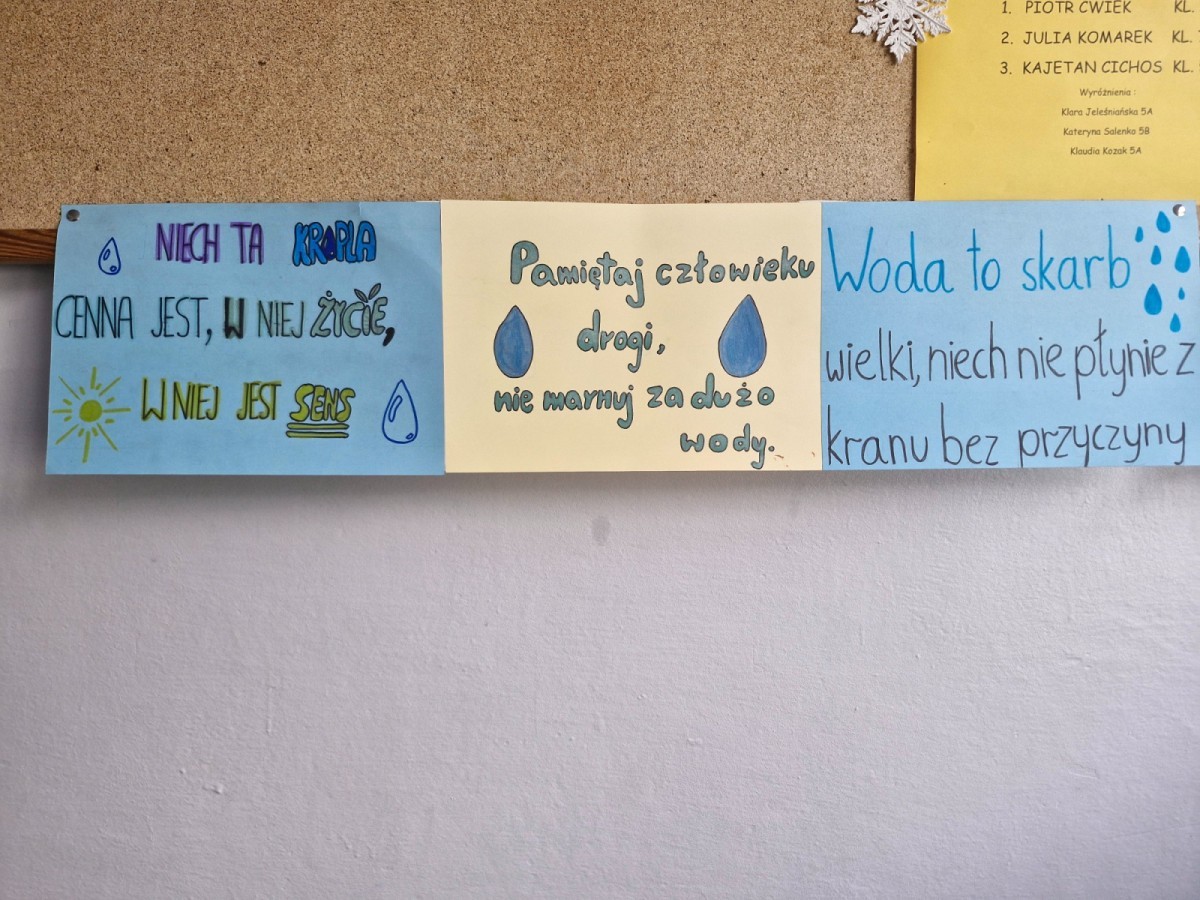 1. PIOTR ĆWIEK KL.
2. JULIA KOMAREK KL.
3. KAJETAN CICHOS KL.
Wyróżnienia :
Klara Jeleśniańska 5A
Kateryna Salenko 5B
Klaudia Kozak 5A
NIECH TA KROPLA
CENNA JEST, W NIEJ ŻYCIE,
W NIEJ JEST SENS
Pamiętaj człowieku
drogi,
nie marnuj za dużo
wody.
Woda to skarb
wielki, niech nie płynie z
kranu bez przyczyny